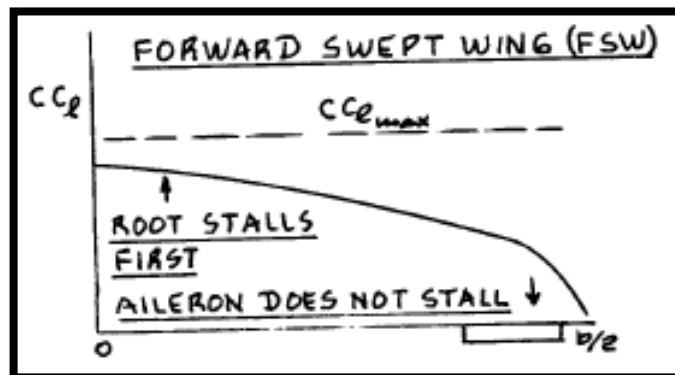 FORWARD SWEPT WING (FSW)
CCℓ
CCℓmax
ROOT STALLS
FIRST
AILERON DOES NOT STALL
0
b/2